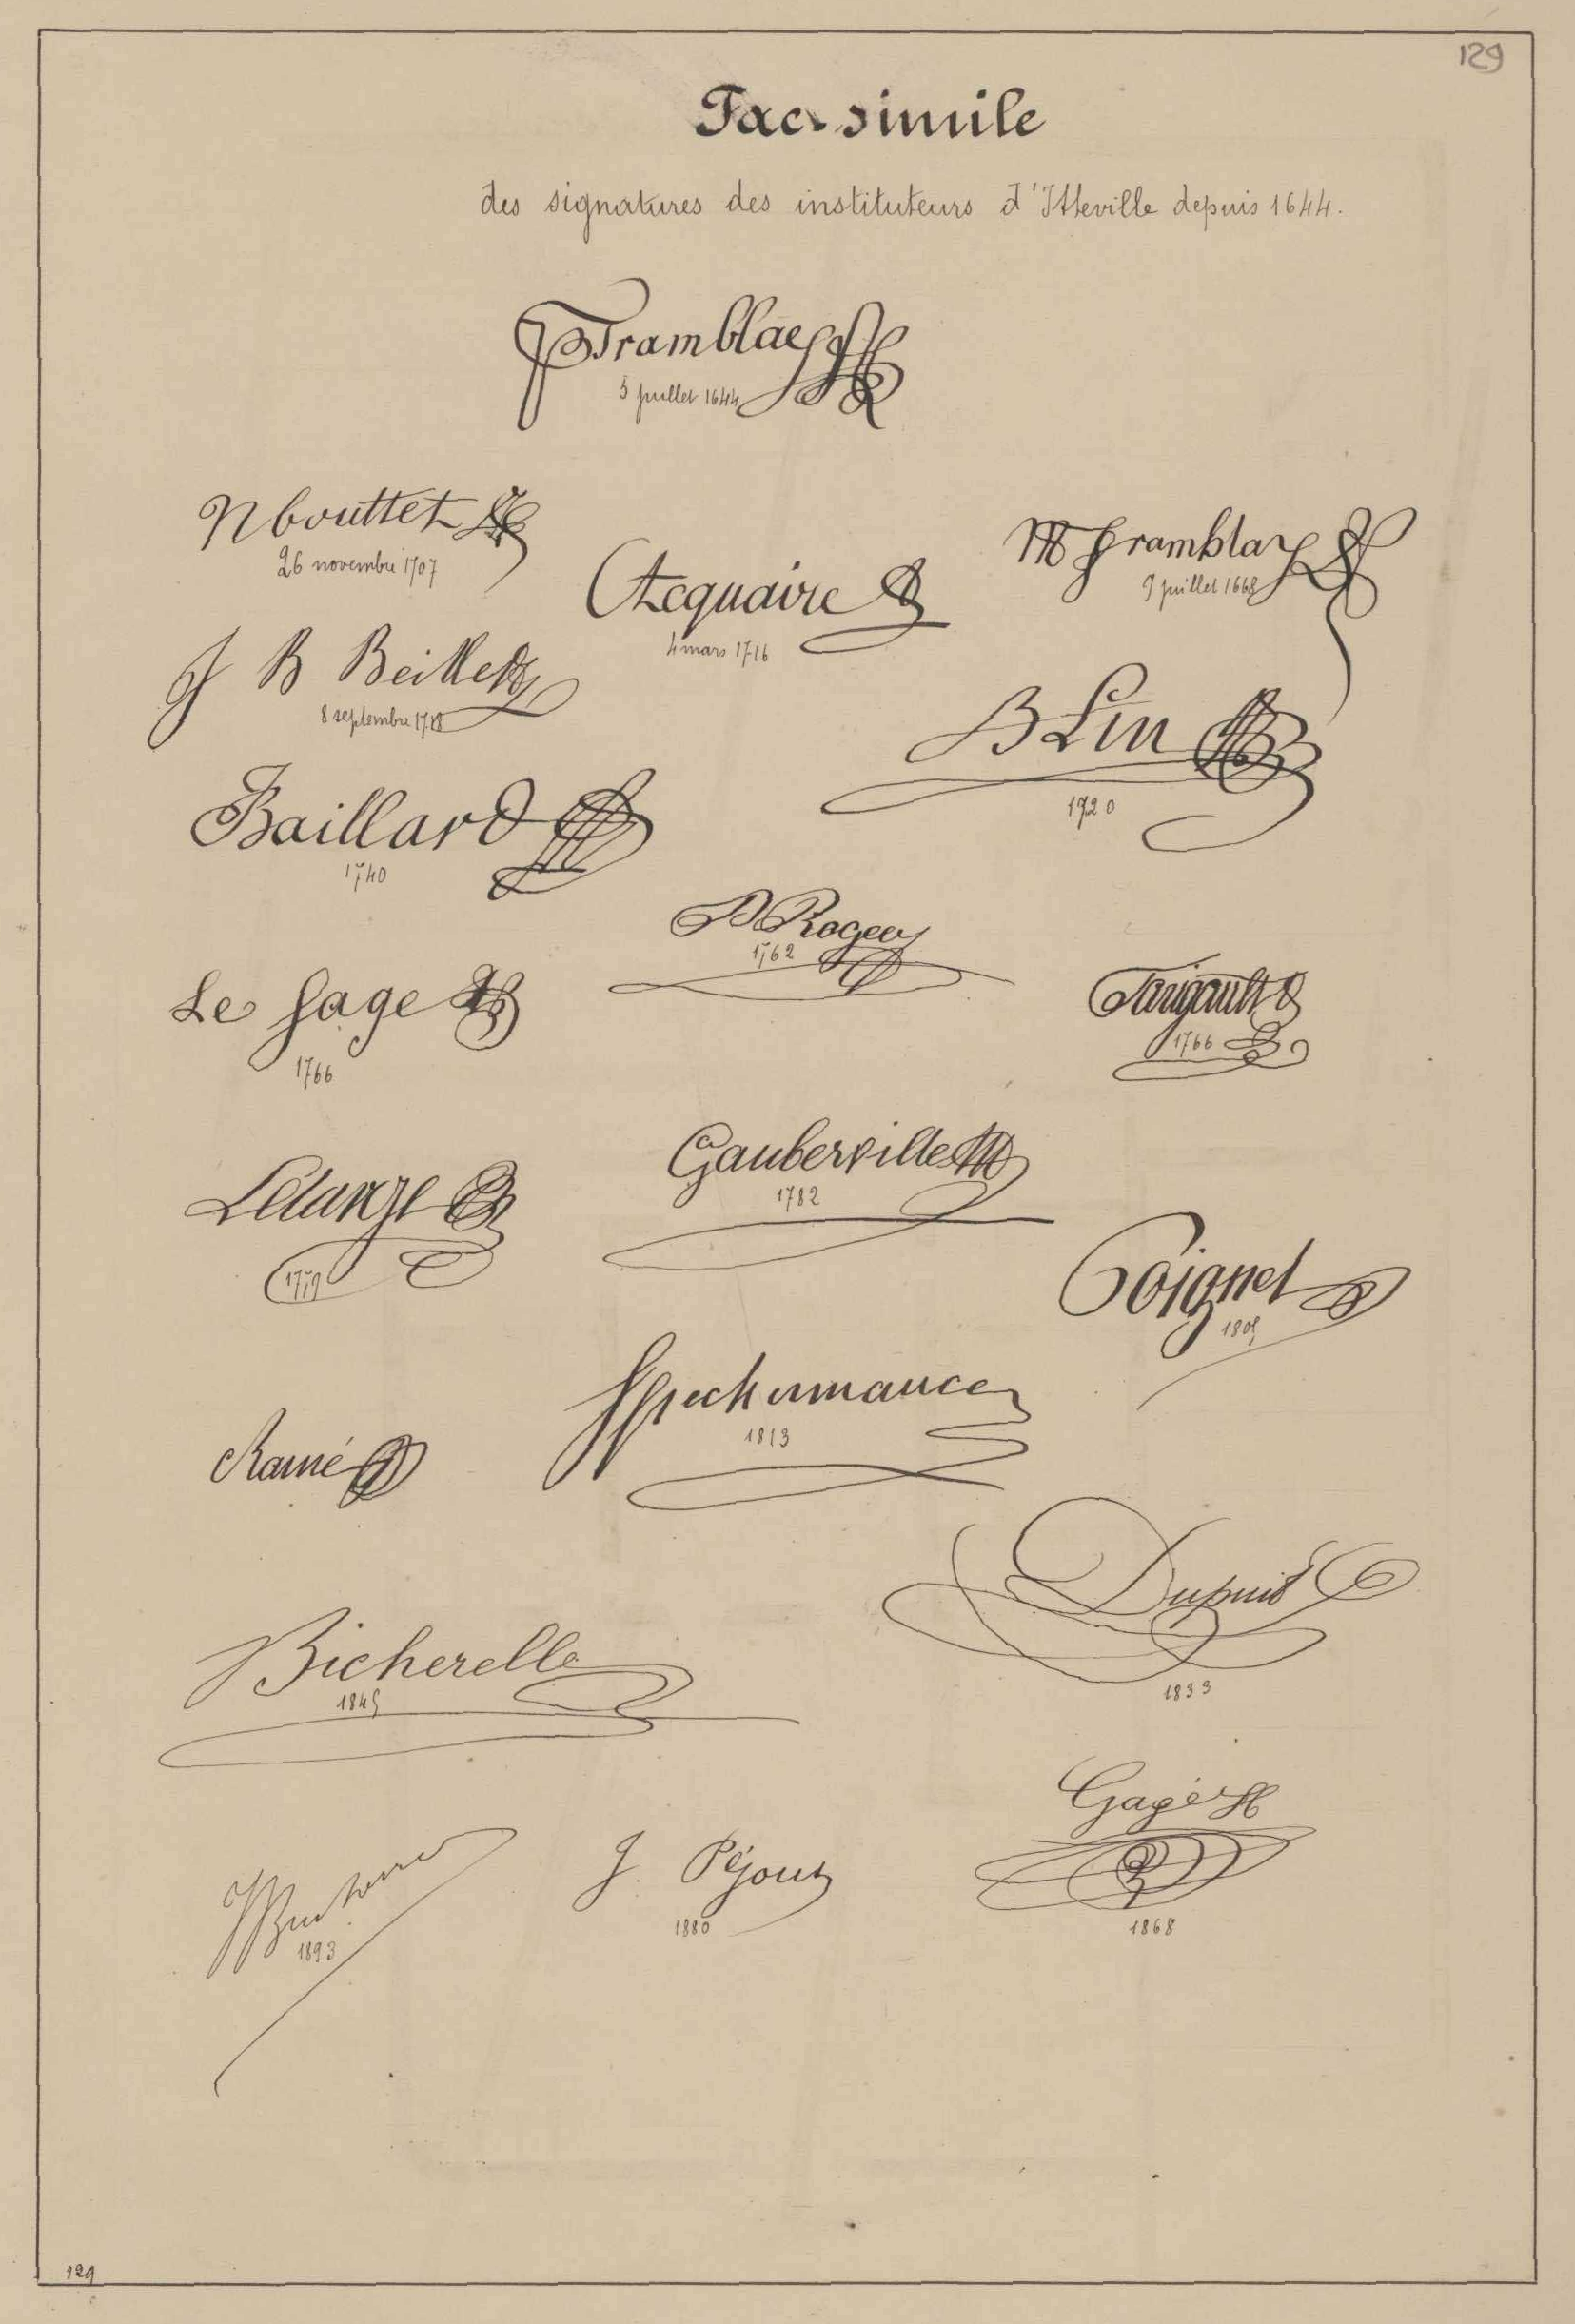 129
Fac-simile
des signatures des instituteurs d'Itteville depuis 1644.
Tramblay
5 juillet 1644
N bouttet
26 novembre 1707
M Tramblay
9 juillet 1668
Acquaire
4 mars 1716
J B Beillet
8 septembre 1718
B Lin
1720
Baillard
1740
P Roger
1762
Le Sage
1766
Tarigault
1766
Gauberville
1782
Lelarge
1779
Coignet
1809
1813
Ramé
Dupuis
1833
Bicherelle
1845
Gagé
1868
J. Péjouz
1880
1893
129